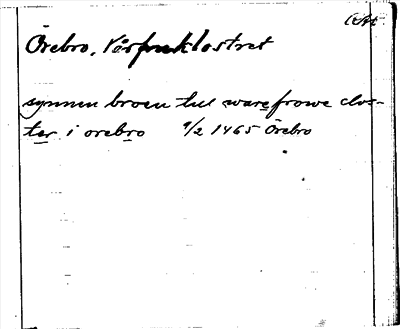 Örebro, Vårfruklostret
synnen broen till warefrowe clos-
ter i orebro 9/2 1465 Örebro